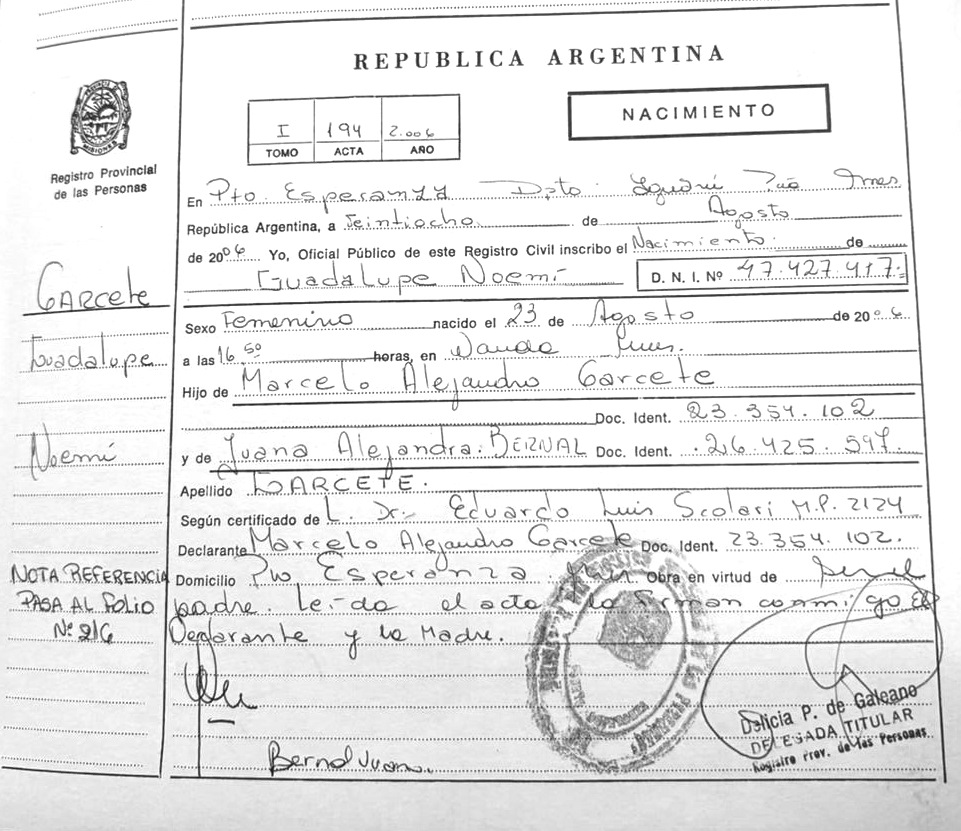 REPUBLICA ARGENTINA
NACIMIENTO
I 194 2.006
TOMO ACTA AÑO
MISIONES
Registro Provincial
de las Personas
En Pto. Esperanza Dpto. Iguazú Mnes
República Argentina, a Veintiocho de Agosto
de 2006 Yo, Oficial Público de este Registro Civil inscribo el Nacimiento de
Guadalupe Noemí D. N. I. Nº 47.427.417.-
Garcete
Guadalupe
Noemí
Sexo Femenino nacido el 23 de Agosto de 2006
a las 16.50 horas, en Wanda Mnes.
Hijo de Marcelo Alejandro Garcete
Doc. Ident. 23.354.102
y de Juana Alejandra. BERNAL Doc. Ident. .26.425.597
Apellido GARCETE.
Según certificado de L. Dr. Eduardo Luis Scolari M.P. 2124
Declarante Marcelo Alejandro Garcete Doc. Ident. 23.354.102.
Domicilio Pto. Esperanza Obra en virtud de
padre. Leída el acta la firman conmigo El
Declarante y la Madre.
NOTA REFERENCIA
PASA AL FOLIO
Nº 216
Bernal Juana.
Delicia P. de Galeano
DELEGADA TITULAR
Registro Prov. de las Personas